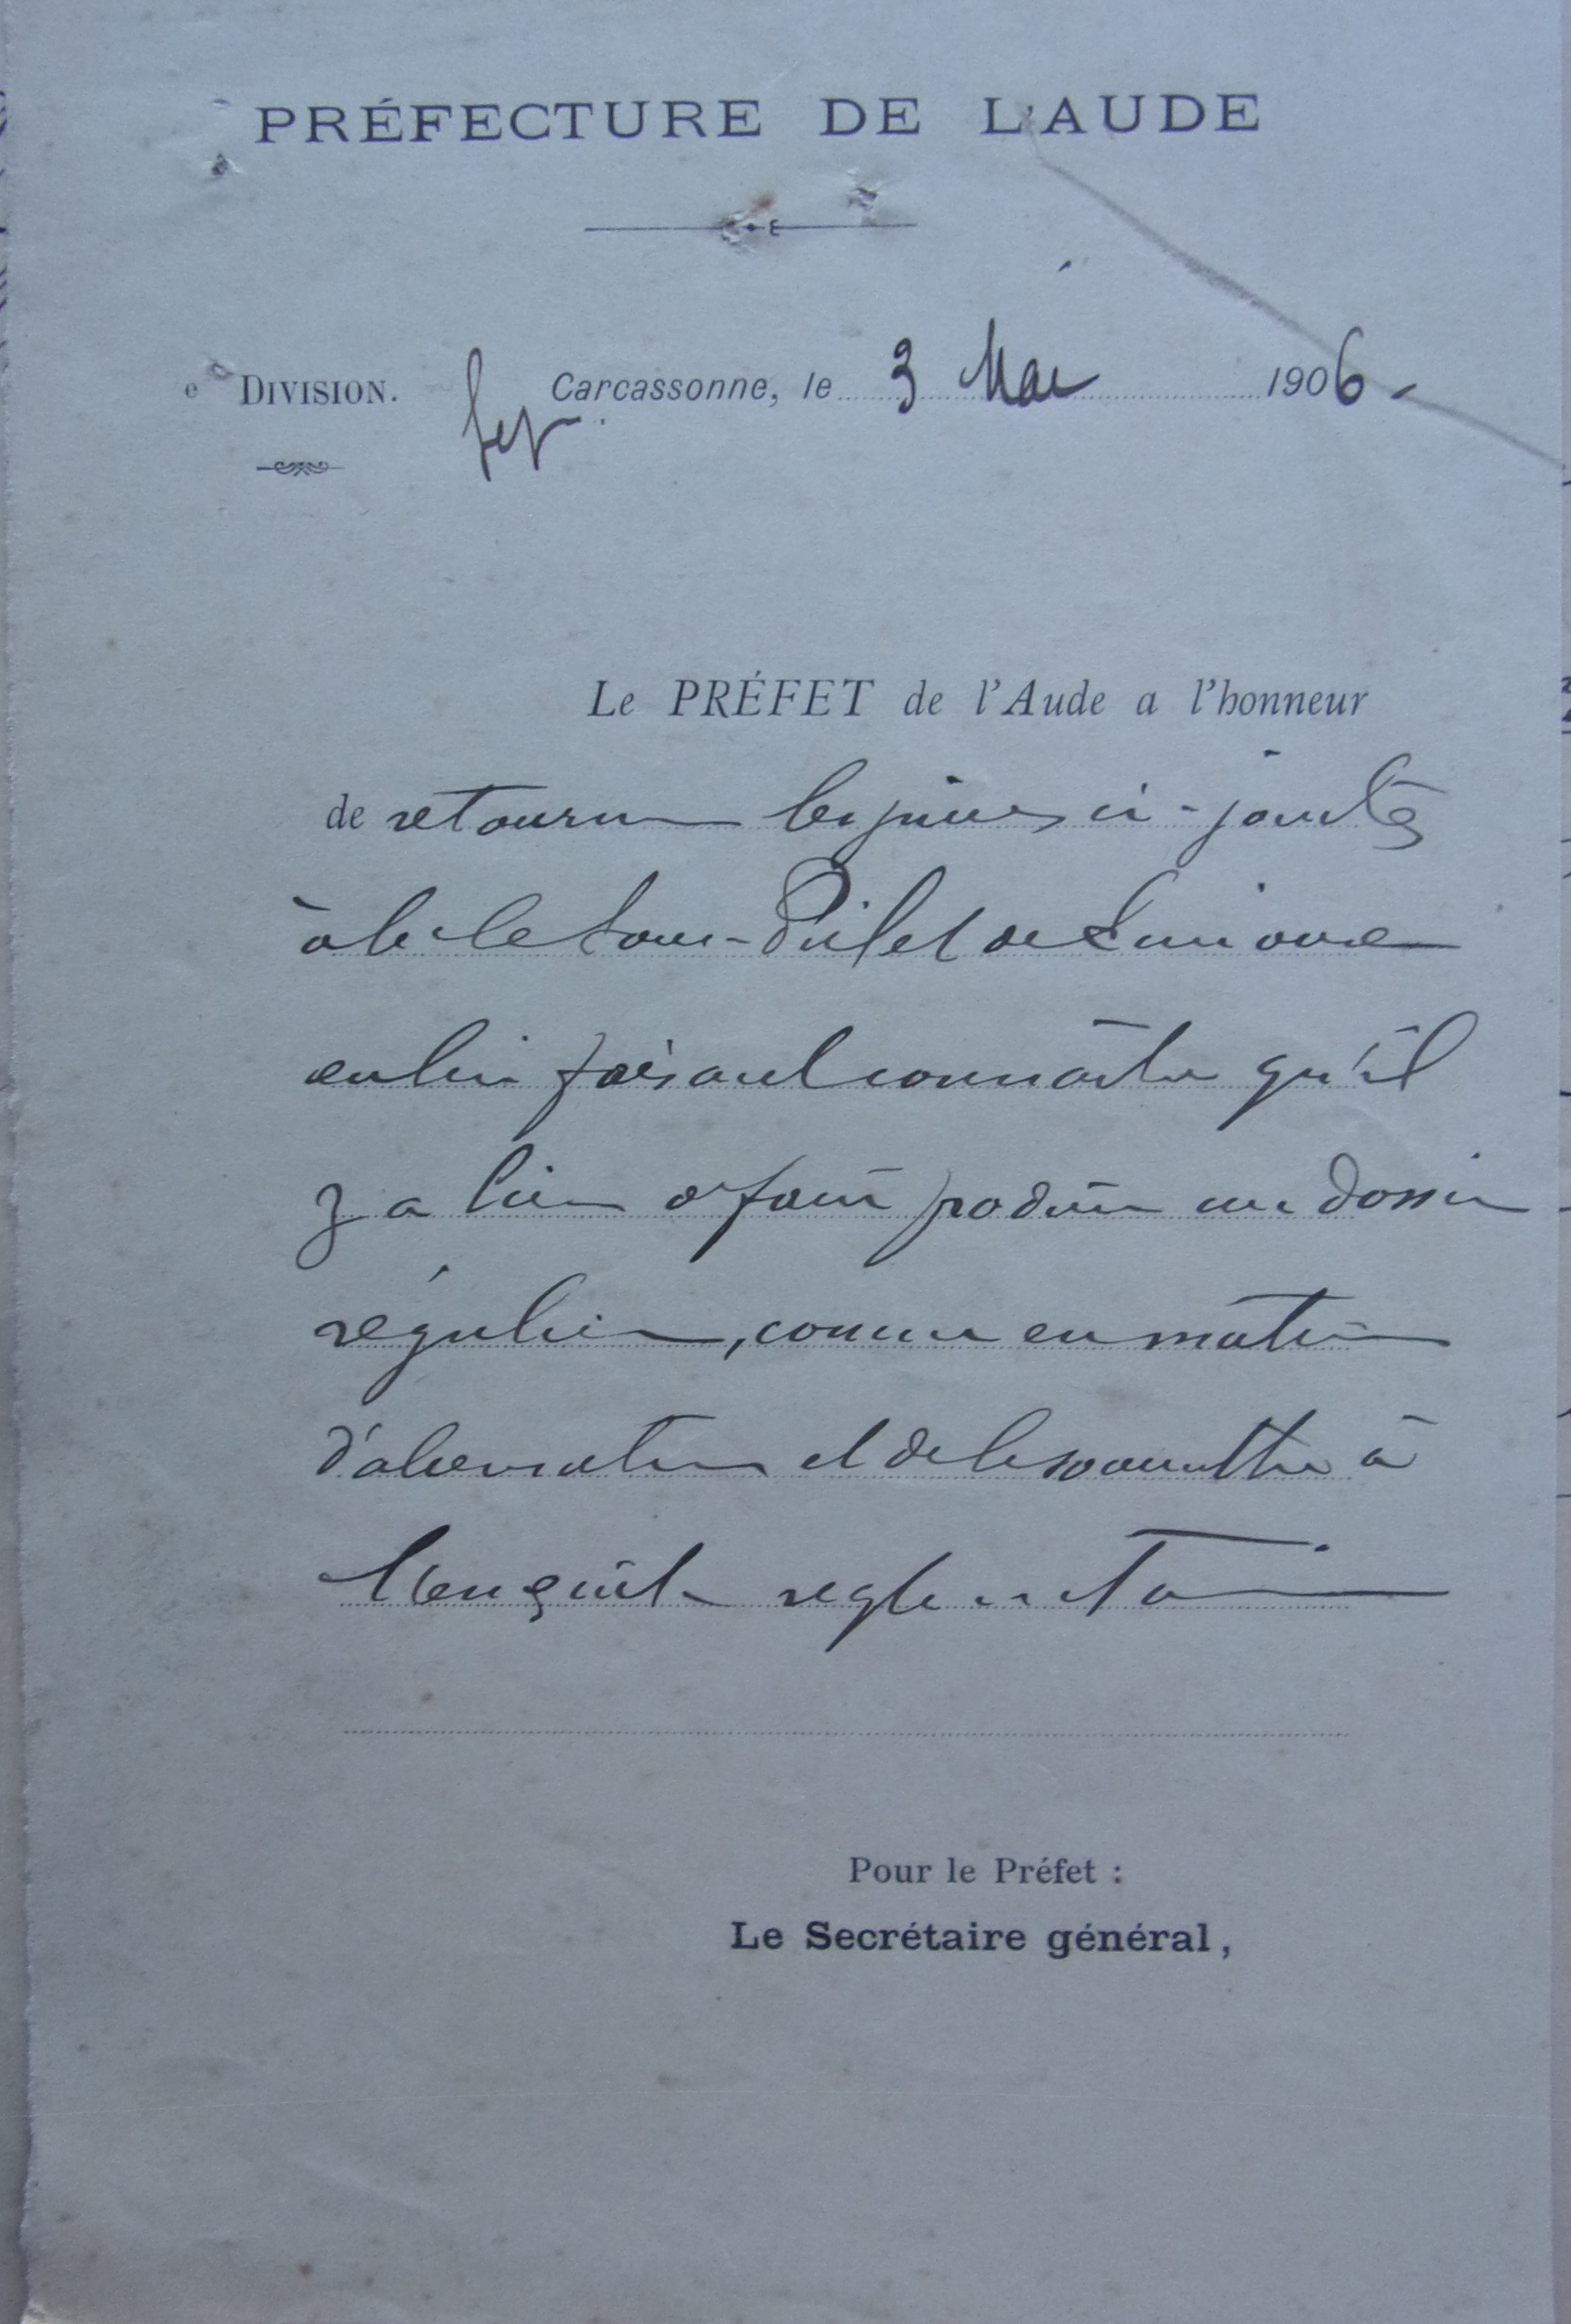 PRÉFECTURE DE L'AUDE
e DIVISION.
Carcassonne, le 3 Mai 1906.
Le PRÉFET de l'Aude a l'honneur
de retourner les pièces ci-jointes
à M. le Sous-Préfet de
en lui faisant connaître qu'il
y a lieu de faire produire un dossier
régulier, comme en matière
d'aliénation et de le soumettre à
l'enquête réglementaire
Pour le Préfet :
Le Secrétaire général,